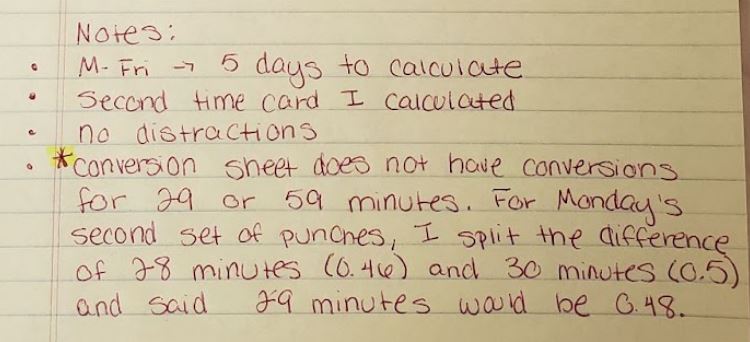 Notes:
• M-Fri → 5 days to calculate
• Second time card I calculated
• no distractions
• *conversion sheet does not have conversions
for 29 or 59 minutes. For Monday's
second set of punches, I split the difference
of 28 minutes (0.46) and 30 minutes (0.5)
and said 29 minutes would be 0.48.